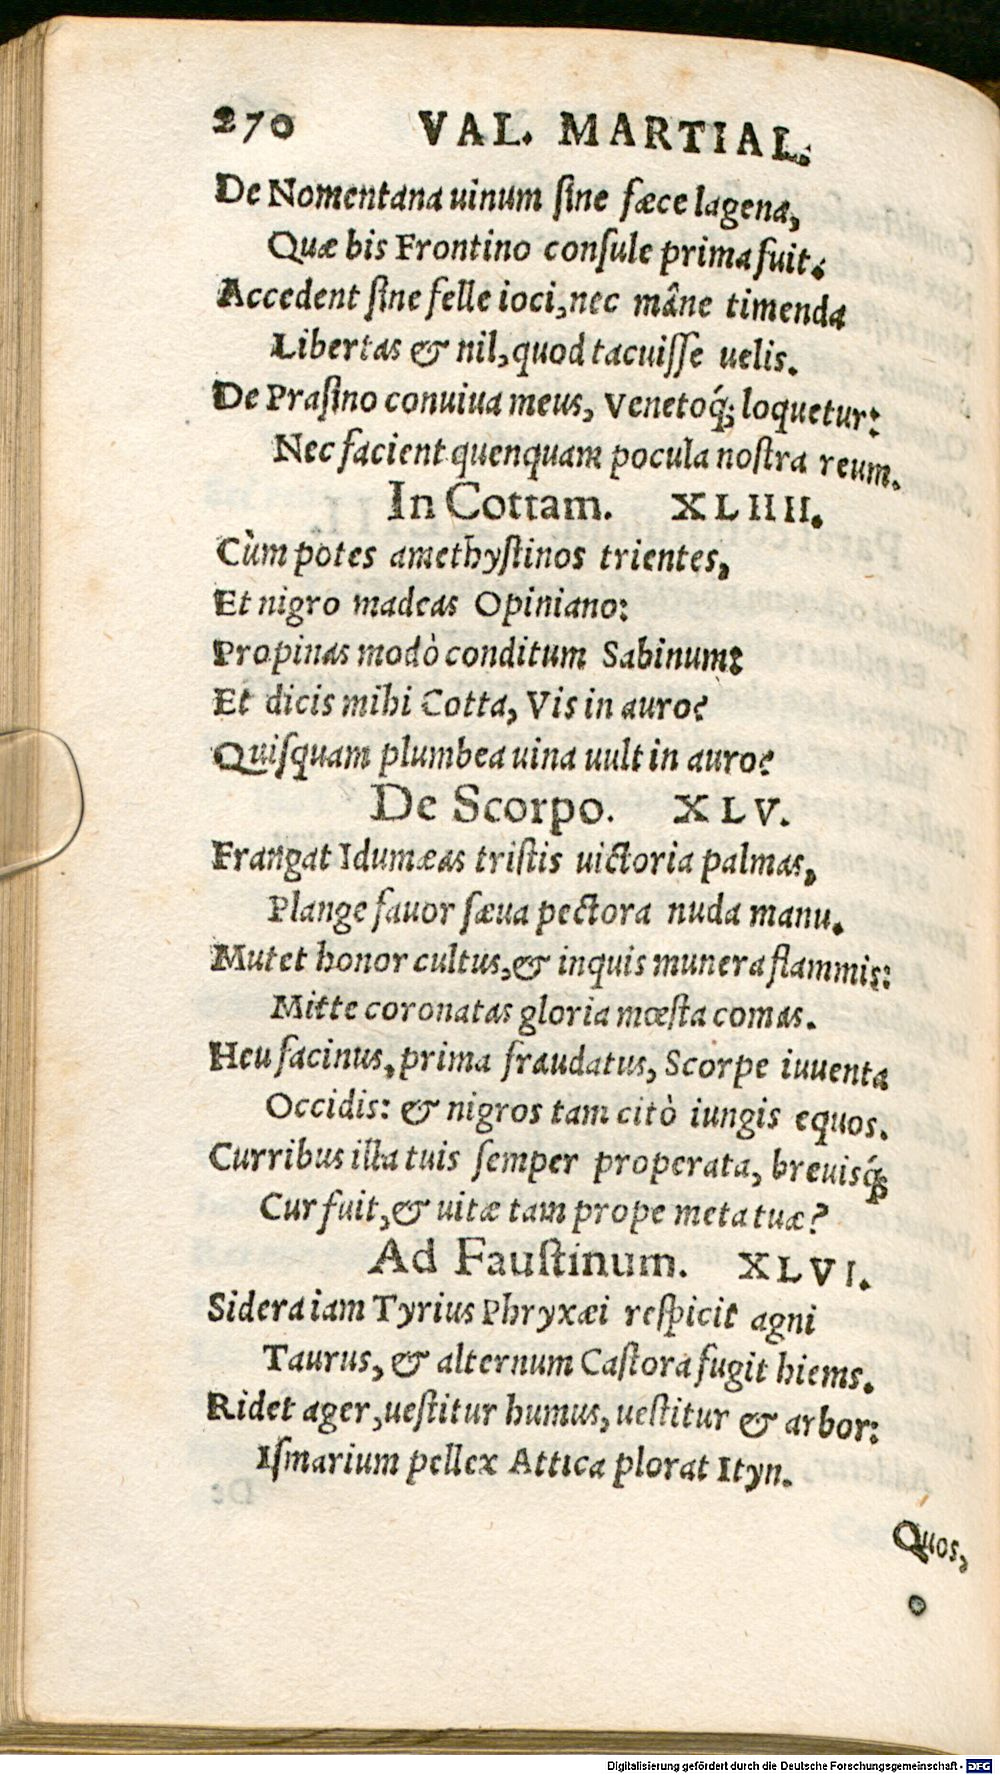 270 VAL. MARTIAL.
De Nomentana uinum ſine fæce lagena,
Quæ bis Frontino conſule prima fuit.
Accedent ſine felle ioci, nec mâne timenda
Libertas & nil, quod tacuiſſe uelis.
De Praſino conuiua meus, Venetoq́; loquetur:
Nec facient quenquam pocula noſtra reum.
In Cottam. XLIIII.
Cùm potes amethyſtinos trientes,
Et nigro madeas Opiniano:
Propinas modò conditum Sabinum:
Et dicis mihi Cotta, Vis in auro?
Quiſquam plumbea uina uult in auro?
De Scorpo. XLV.
Frangat Idumæas triſtis uictoria palmas,
Plange fauor ſæua pectora nuda manu.
Mutet honor cultus, & inquis munera flammis:
Mitte coronatas gloria mœſta comas.
Heu facinus, prima fraudatus, Scorpe iuuenta
Occidis: & nigros tam citò iungis equos.
Curribus illa tuis ſemper properata, breuisq́;
Cur fuit, & uitæ tam prope meta tuæ?
Ad Fauſtinum. XLVI.
Sidera iam Tyrius Phryxæi reſpicit agni
Taurus, & alternum Caſtora fugit hiems.
Ridet ager, ueſtitur humus, ueſtitur & arbor:
Iſmarium pellex Attica plorat Ityn.
Quos,
Digitalisierung gefördert durch die Deutsche Forschungsgemeinschaft - DFG